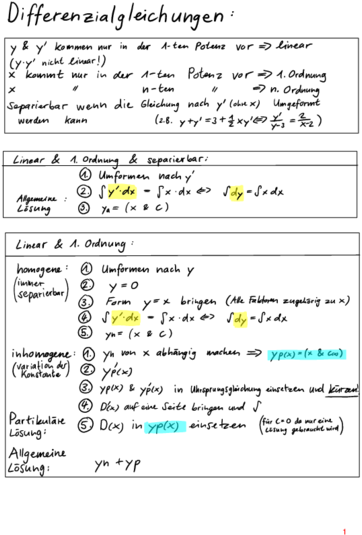 Differenzialgleichungen:
y & y' kommen nur in der 1-ten Potenz vor => linear
(y·y' nicht linear!)
x kommt nur in der 1-ten Potenz vor => 1. Ordnung
x " n-ten " => n. Ordnung
Separierbar wenn die Gleichung nach y' (ohne x) Umgeformt
werden kann (z.B. y+y'=3+½xy' <=> y'/(y-3) = 2/(x-2))
Linear & 1. Ordnung & separierbar:
① Umformen nach y'
② ∫y'·dx = ∫x·dx <=> ∫dy = ∫x dx
Allgemeine Lösung ③ ya = (x & c)
Linear & 1. Ordnung:
homogene: ① Umformen nach y
(immer separierbar) ② y = 0
③ Form y = x bringen (Alle Faktoren zugehörig zu x)
④ ∫y'·dx = ∫x·dx <=> ∫dy = ∫x dx
⑤ yh = (x & c)
inhomogene: ① yh von x abhängig machen => yp(x) = (x & c(x))
(Variation der Konstante) ② yp'(x)
③ yp(x) & yp'(x) in Ursprungsgleichung einsetzen und kürzen
④ D(x) auf eine Seite bringen und ∫
Partikuläre Lösung: ⑤ D(x) in yp(x) einsetzen (für c=0 da nur eine Lösung gebraucht wird)
Allgemeine
Lösung: yh + yp
1